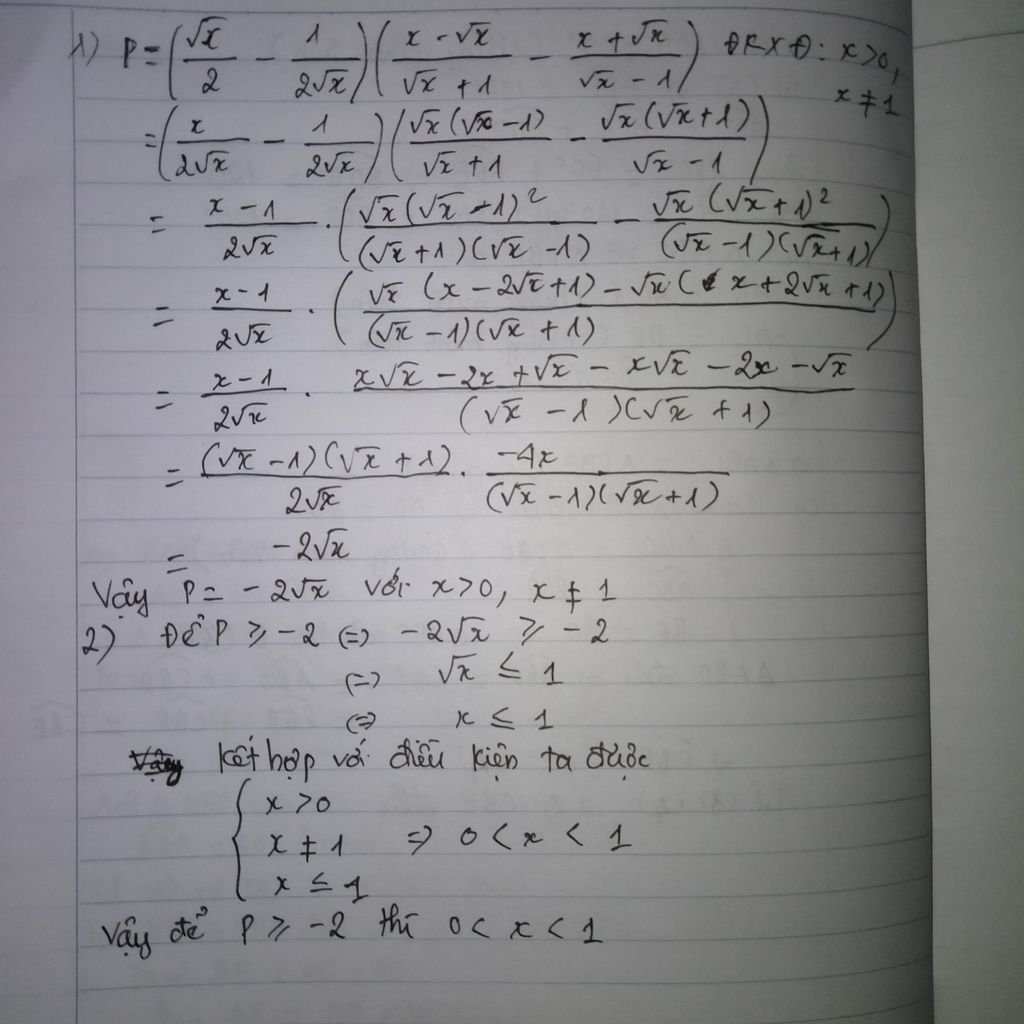 1) P = (√x/2 − 1/(2√x)) ((x − √x)/(√x + 1) − (x + √x)/(√x − 1)) ĐKXĐ: x > 0, x ≠ 1
= (x/(2√x) − 1/(2√x)) (√x(√x − 1)/(√x + 1) − √x(√x + 1)/(√x − 1))
= (x − 1)/(2√x) · (√x(√x − 1)²/((√x + 1)(√x − 1)) − √x(√x + 1)²/((√x − 1)(√x + 1)))
= (x − 1)/(2√x) · ((√x(x − 2√x + 1) − √x(x + 2√x + 1))/((√x − 1)(√x + 1)))
= (x − 1)/(2√x) · (x√x − 2x + √x − x√x − 2x − √x)/((√x − 1)(√x + 1))
= (√x − 1)(√x + 1)/(2√x) · −4x/((√x − 1)(√x + 1))
= −2√x
Vậy P = −2√x với x > 0, x ≠ 1
2) Để P ⩾ −2 (=) −2√x ⩾ −2
(=) √x ≤ 1
(=) x ≤ 1
Kết hợp với điều kiện ta được
{ x > 0
x ≠ 1 => 0 < x < 1
x ≤ 1
Vậy để P ⩾ −2 thì 0 < x < 1